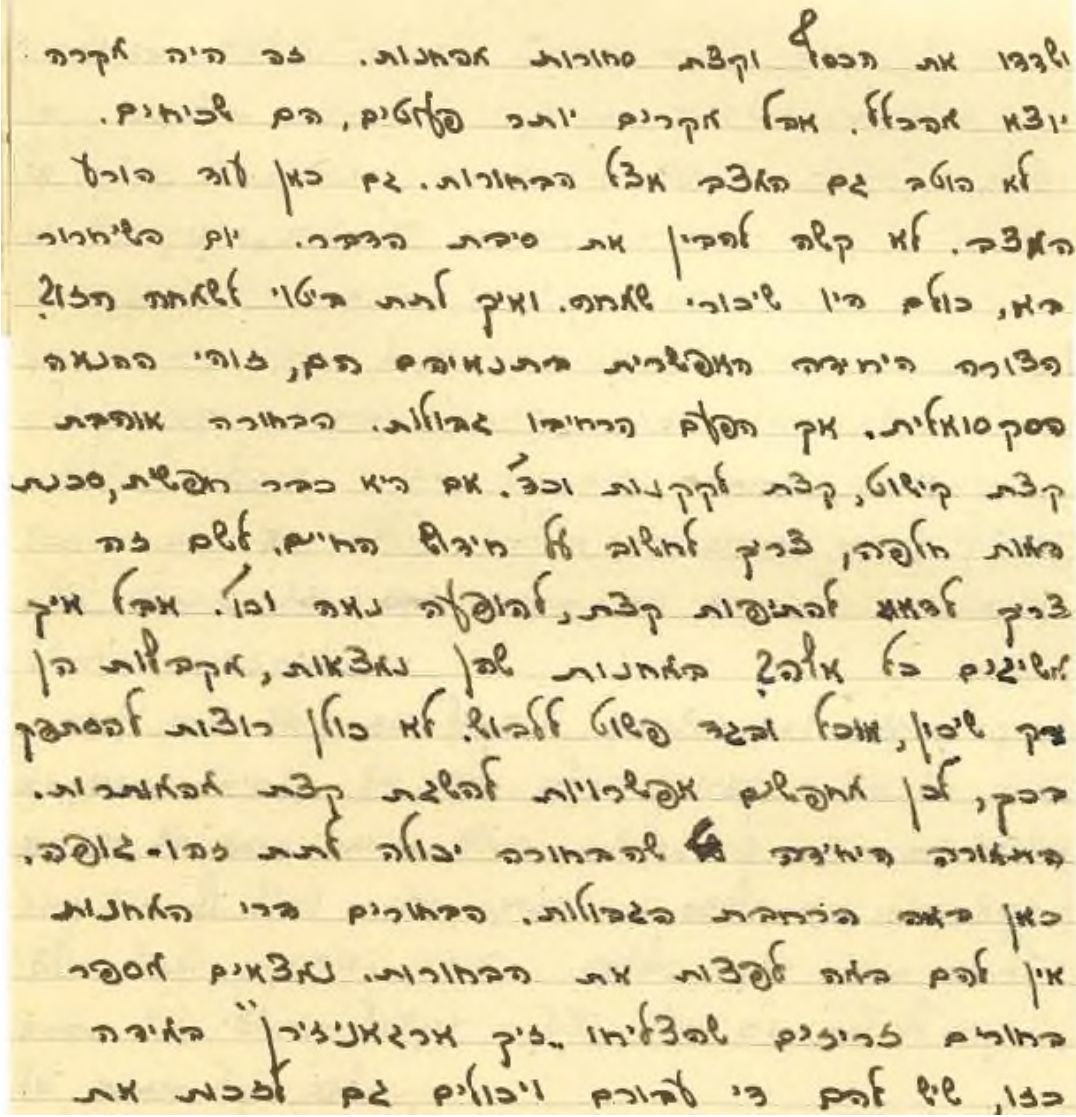 ושדדו את הכסף וקצת סחורות מהחנות. זה היה מקרה
יוצא מהכלל. אבל מקרים יותר פעוטים, הם שכיחים.
לא הוטב גם המצב אצל הבחורות. גם כאן עוד הורע
המצב. לא קשה להבין את סיבת הדבר. יום השיחרור
בא, כולם היו שיכורי שמחה. ואיך לתת ביטוי לשמחה הזו?
הצורה היחידה האפשרית בתנאים הם, זוהי ההנאה
הסקסואלית. אך הפעם הרחיבו גבולות. הבחורה אוהבת
קצת קישוט, קצת לקקנות וכד'. אם היא כבר חפשית, סכנת
מות חלפה, צריך לחשוב על חידוש החיים. לשם זה
צריך לדאוג להתיפות קצת, להופעה נאה וכו'. אבל איך
משיגים כל אלה? במחנות שהן נמצאות, מקבלות הן
רק שיכון, אוכל ובגד פשוט ללבוש. לא כולן רוצות להסתפק
בכך, לכן מחפשים אפשרויות להשגת קצת מותרות.
התמורה היחידה שהבחורה יכולה לתת זהו - גופה.
כאן באה הרחבת הגבולות. הבחורים דרי המחנות
אין להם במה לפצות את הבחורות. נמצאים מספר
בחורים זריזים שהצליחו "זיך ארגאניזירן" במידה
כזו, שיש להם די עבורם ויכולים גם לזכות את